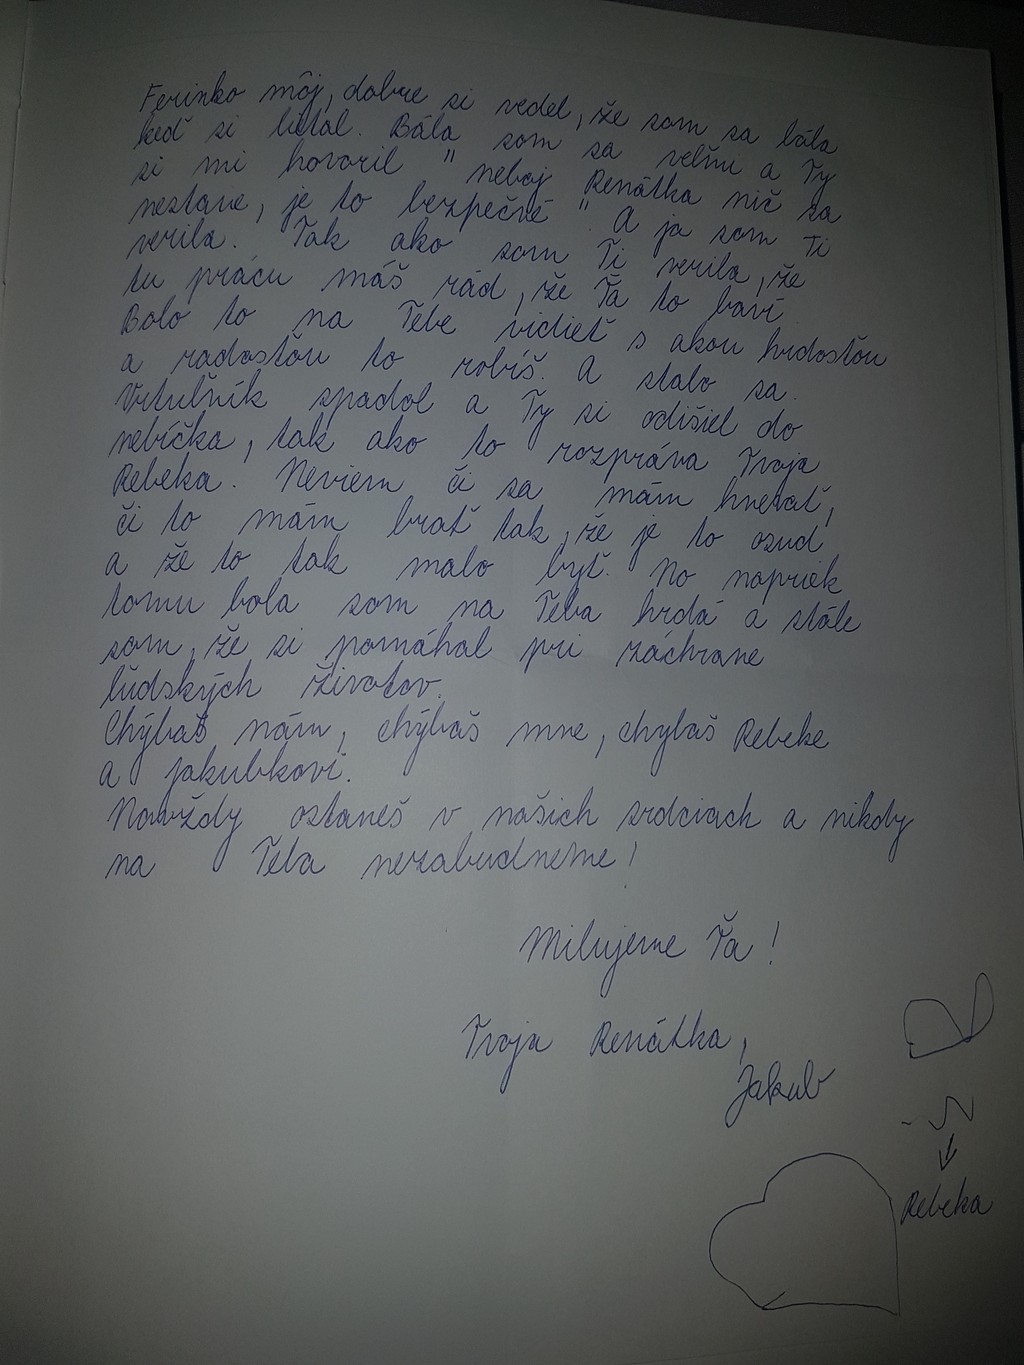 Ferinko môj, dobre si vedel, že som sa bála
keď si lietal. Bála som sa veľmi a Ty
si mi hovoril " neboj Renátka nič sa
nestane, je to bezpečné ". A ja som Ti
verila. Tak ako som Ti verila, že
tu prácu máš rád, že Ťa to baví.
Bolo to na Tebe vidieť s akou hrdosťou
a radosťou to robíš. A stalo sa.
Vrtuľník spadol a Ty si odišiel do
nebíčka, tak ako to rozpráva Tvoja
Rebeka. Neviem či sa mám hnevať,
či to mám brať tak, že je to osud
a že to tak malo byť. No napriek
tomu bola som na Teba hrdá a stále
som, že si pomáhal pri záchrane
ľudských životov.
Chýbaš nám, chýbaš mne, chýbaš Rebeke
a Jakubkovi.
Navždy ostaneš v našich srdciach a nikdy
na Teba nezabudneme!
Milujeme Ťa!
Tvoja Renátka,
Jakub
Rebeka